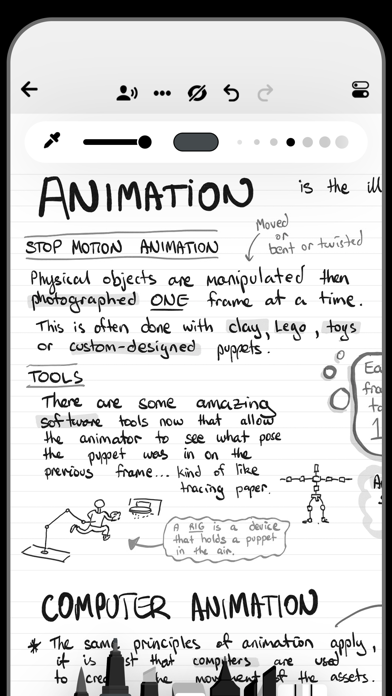 ANIMATION is the ill
Moved
or
bent or twisted
STOP MOTION ANIMATION
Physical objects are manipulated then
photographed ONE frame at a time.
This is often done with clay, Lego, toys
or custom-designed puppets.
TOOLS
There are some amazing
software tools now that allow
the animator to see what pose
the puppet was in on the
previous frame... kind of like
tracing paper.
Ea
fra
ta
1
A RIG is a device
that holds a puppet
in the air.
COMPUTER ANIMATION
* The same principles of animation apply,
it is just that computers are used
to the movement of the assets.